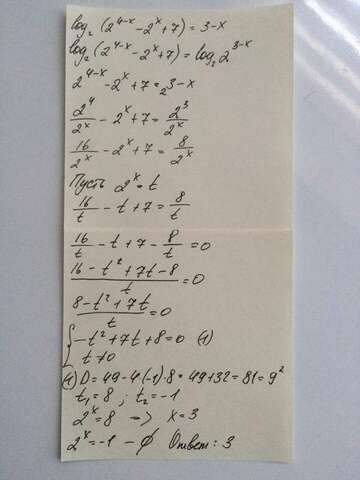 log₂(2^{4-x} - 2^x + 7) = 3 - x
log₂(2^{4-x} - 2^x + 7) = log₂ 2^{3-x}
2^{4-x} - 2^x + 7 = 2^{3-x}
2^4/2^x - 2^x + 7 = 2^3/2^x
16/2^x - 2^x + 7 = 8/2^x
Пусть 2^x = t
16/t - t + 7 = 8/t
16/t - t + 7 - 8/t = 0
(16 - t² + 7t - 8)/t = 0
(8 - t² + 7t)/t = 0
{ -t² + 7t + 8 = 0 (1)
t ≠ 0
(1) D = 49 - 4(-1)·8 = 49 + 32 = 81 = 9²
t₁ = 8 ; t₂ = -1
2^x = 8 => x = 3
2^x = -1 - ∅ Ответ: 3